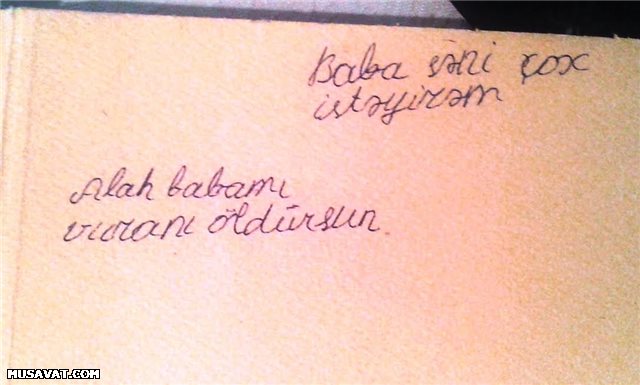 Baba səni çox
istəyirəm
Alah babamı
vuranı öldürsun
MUSAVAT.COM